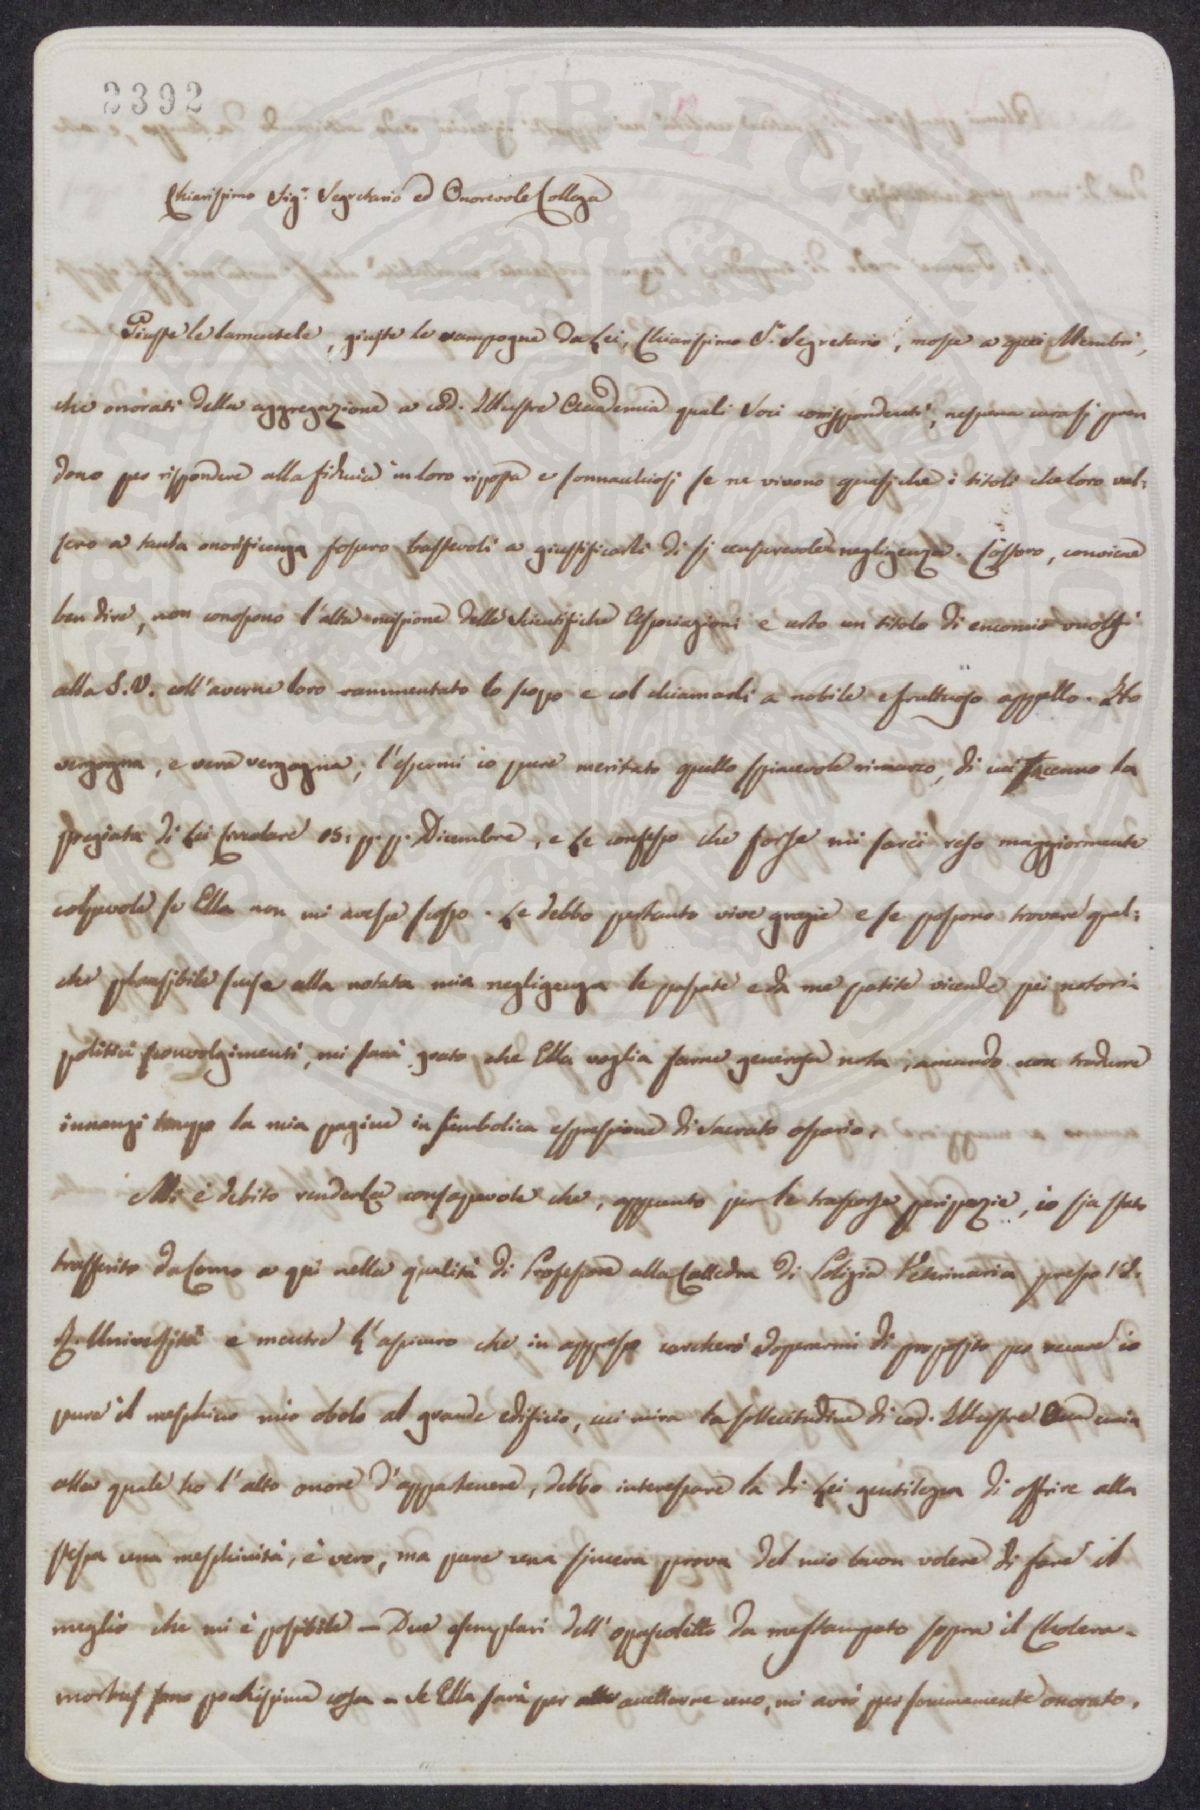 2392
Chiarissimo Sigr. Segretario ed Onorevole Collega
Giuste le lamentele, giuste le rampogne da Lei, Chiarissimo Sr. Segretario, mosse a quei Membri,
che onorati della aggregazione a cod. Illustre Accademia quali Soci corrispondenti, nessuna cura si pren
dono per rispondere alla fiducia in loro riposta e sonnacchiosi se ne vivono quasi che i titoli che loro val:
sero a tanta onorificenza fossero bastevoli a giustificarli di sì censurevole negligenza. Costoro, conviene
ben dire, non conoscono l'alta missione delle scientifiche Associazioni e certo un titolo di encomio vuolsi
alla S.V. coll'averne loro rammentato lo scopo e col chiamarli a nobile e fruttuoso appello. Ho
vergogna, e vera vergogna, l'essermi io pure meritato quello spiacevole rimarco, di cui fa cenno la
pregiata di Lei Circolare 15. p. p. Dicembre, e Le confesso che forse mi sarei reso maggiormente
colpevole se Ella non mi avesse scosso. Le debbo pertanto vive grazie e se possono trovare qual:
che plausibile scusa alla notata mia negligenza le passate e da me patite vicende pei notori
politici sconvolgimenti, mi sarà grato che Ella voglia farne generosa nota, amando non tradurre
innanzi tempo la mia pagina in simbolica espressione di sacrato ossario.
Mi è debito renderLa consapevole che, appunto per le trascorse peripezie, io sia stato
trasferito da Como a qui nella qualità di Professore alla Cattedra di Polizia Veterinaria presso l'I.
R. Università e mentre L'assicuro che in appresso cercherò adoperarmi di proposito per recare io
pure il meschino mio obolo al grande edificio, cui mira la sollecitudine di cod. Illustre Accademia
alla quale ho l'alto onore d'appartenere, debbo interessare la di Lei gentilezza di offrire alla
stessa una meschinità, è vero, ma pure una sincera prova del mio buon volere di fare il
meglio che mi è possibile – Due esemplari dell'opuscoletto da me stampato sopra il Cholera-
morbus sono pochissima cosa – Se Ella sarà per accettarne uno, mi avrò per sommamente onorato.